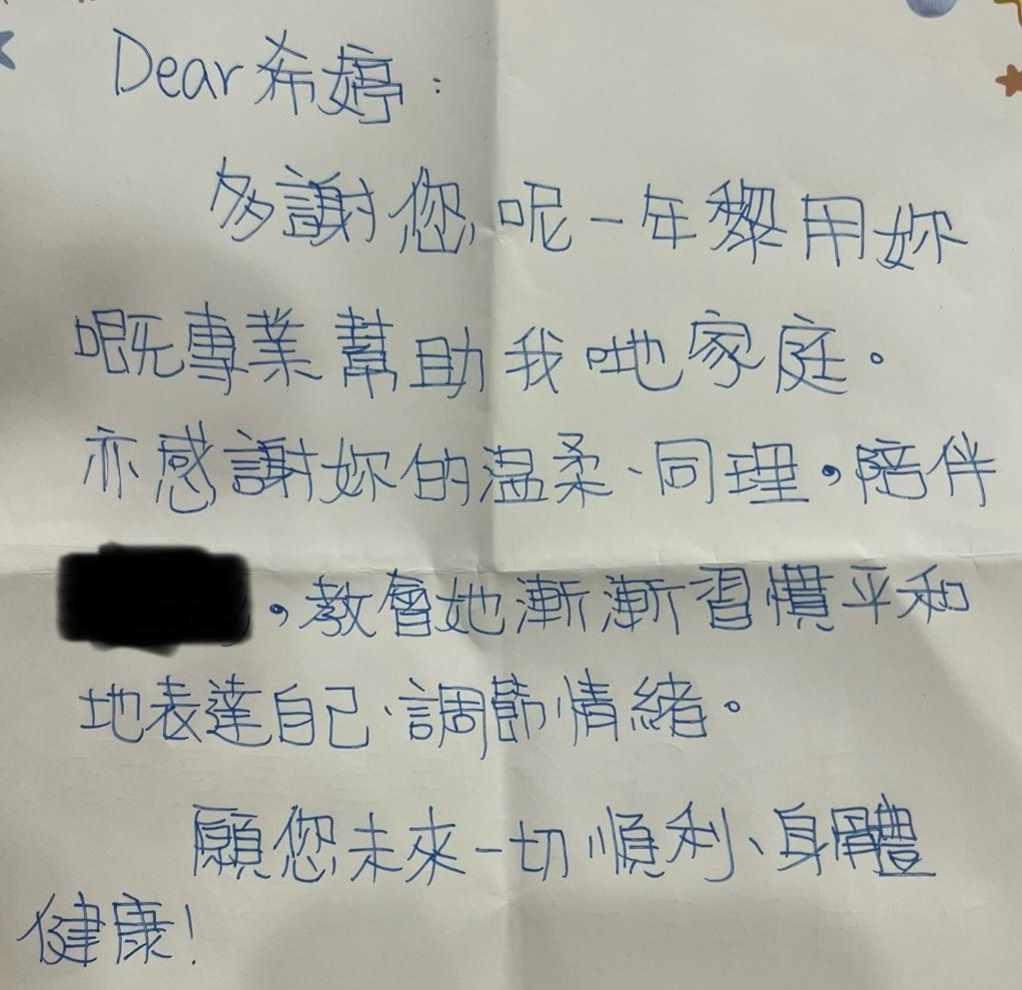 Dear 希婷：
多謝您呢一年黎用妳
嘅專業幫助我哋家庭。
亦感謝妳的温柔、同理，陪伴
，教會她漸漸習慣平和
地表達自己、調節情緒。
願您未來一切順利、身體
健康！